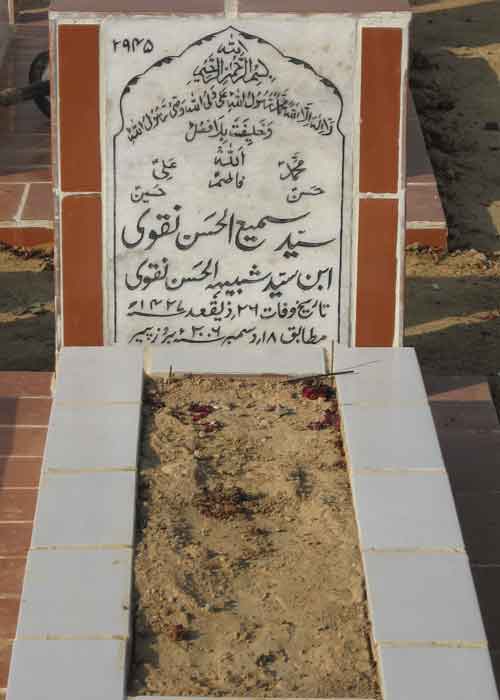 ۲۹۴۵
بسم اللہ الرحمن الرحیم
لا الہ الا اللہ محمد رسول اللہ علی ولی اللہ وصی رسول اللہ
وخلیفتہ بلا فصل
محمدؐ اللہ علیؑ
حسنؑ فاطمہؑ حسینؑ
سید سمیع الحسن نقوی
ابن سید شبیہہ الحسن نقوی
تاریخ وفات ۲۶ ذیقعد ۱۴۲۷ھ
مطابق ۱۸ دسمبر ۲۰۰۶ء بروز پیر